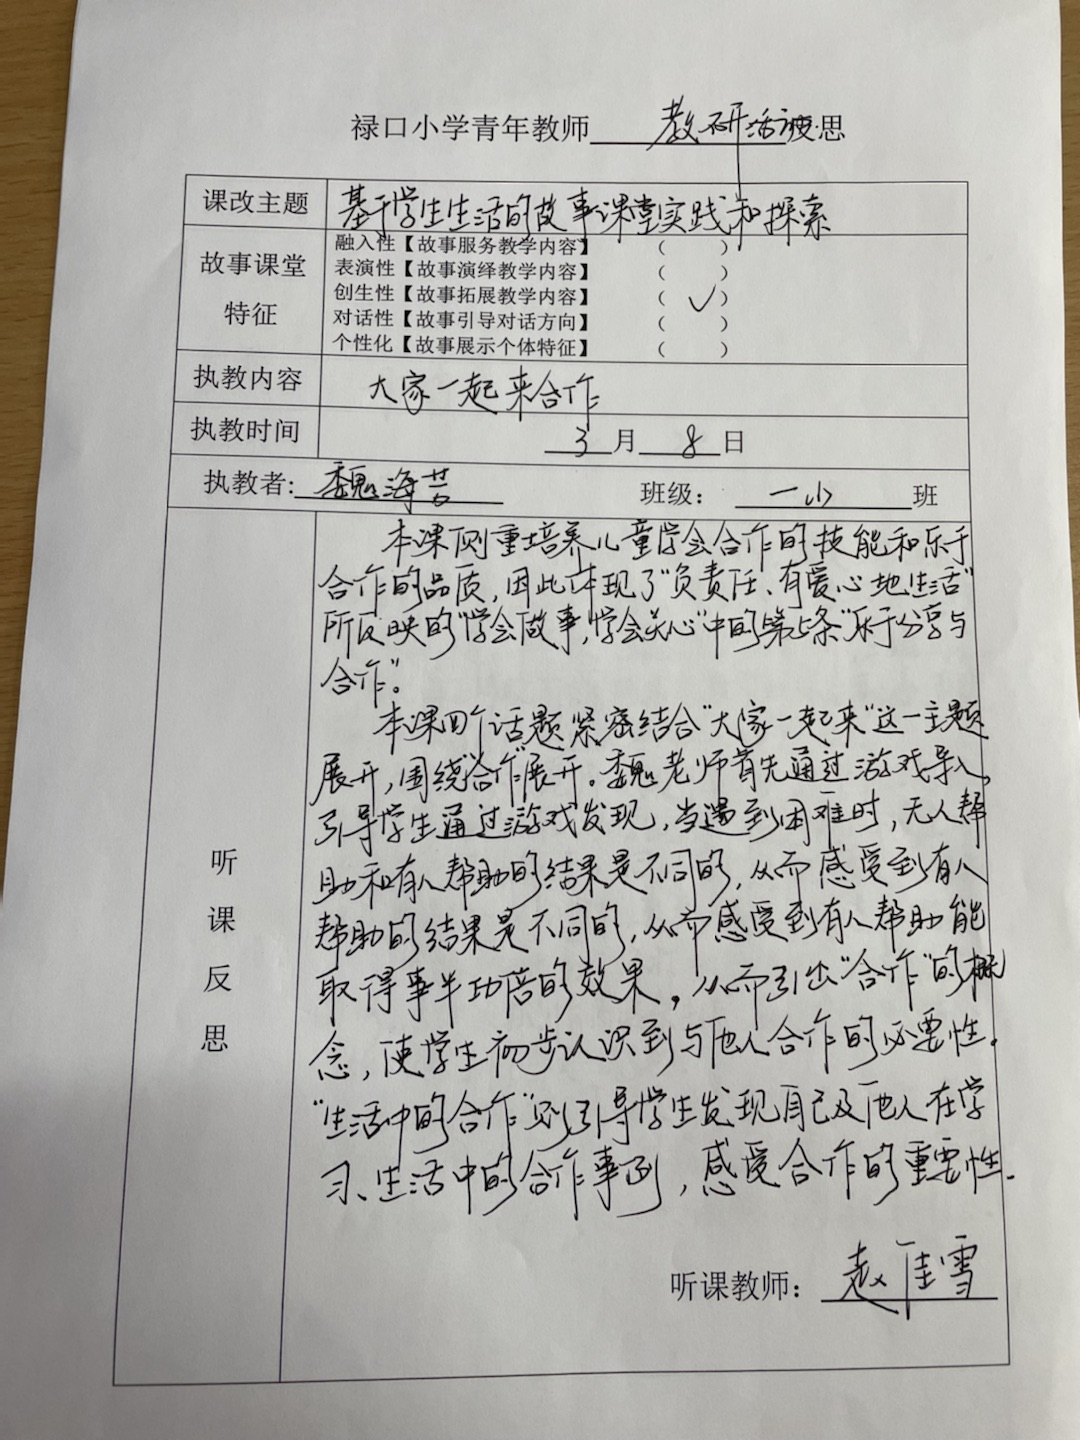 禄口小学青年教师 教研活动反思
课改主题 基于学生生活的故事课堂实践和探索
故事课堂
特征
融入性【故事服务教学内容】 ( )
表演性【故事演绎教学内容】 ( )
创生性【故事拓展教学内容】 ( ✓ )
对话性【故事引导对话方向】 ( )
个性化【故事展示个体特征】 ( )
执教内容 大家一起来合作
执教时间 3月8日
执教者: 魏海 班级: 一 班
听课反思
本课侧重培养儿童学会合作的技能和乐于
合作的品质,因此体现了"负责任、有爱心地生活"
所反映的"学会做事,学会关心"中的第 条"乐于分享与
合作"。
本课四个话题紧密结合"大家一起来"这一主题
展开,围绕"合作"展开。魏老师首先通过游戏导入,
引导学生通过游戏发现,当遇到困难时,无人帮
助和有人帮助的结果是不同的,从而感受到有人
帮助的结果是不同的,从而感受到有人帮助能
取得事半功倍的效果,从而引出"合作"的概
念,使学生初步认识到与他人合作的必要性。
"生活中的合作"则引导学生发现自己及他人在学
习、生活中的合作事例,感受合作的重要性.
听课教师: 赵佳雪